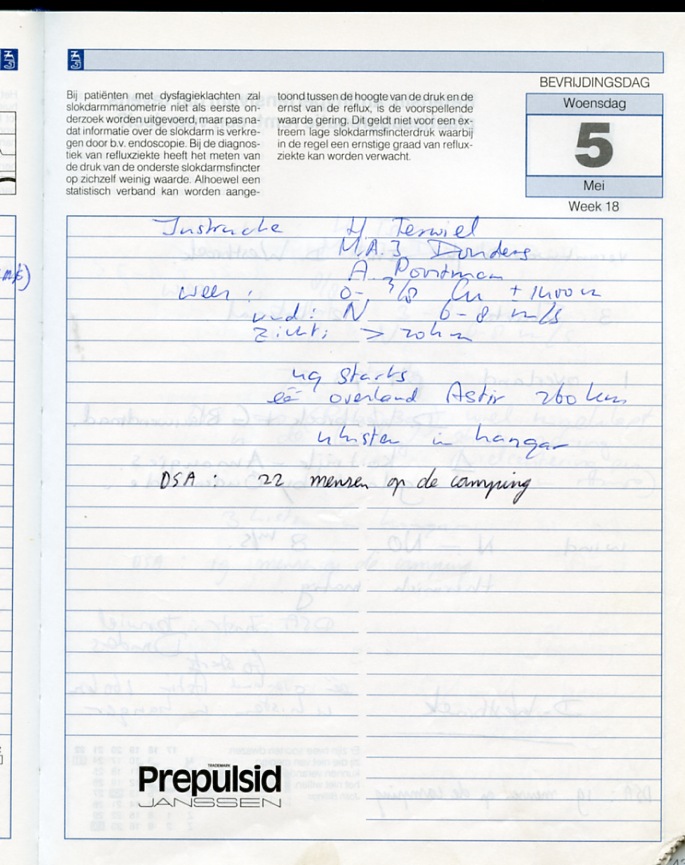 BEVRIJDINGSDAG
Woensdag
5
Mei
Week 18
Bij patiënten met dysfagieklachten zal
slokdarmmanometrie niet als eerste on-
derzoek worden uitgevoerd, maar pas na-
dat informatie over de slokdarm is verkre-
gen door b.v. endoscopie. Bij de diagnos-
tiek van refluxziekte heeft het meten van
de druk van de onderste slokdarmsfincter
op zichzelf weinig waarde. Alhoewel een
statistisch verband kan worden aange-
toond tussen de hoogte van de druk en de
ernst van de reflux, is de voorspellende
waarde gering. Dit geldt niet voor een ex-
treem lage slokdarmsfincterdruk waarbij
in de regel een ernstige graad van reflux-
ziekte kan worden verwacht.
Instructie H Terwiel
M.A.J Donders
A Poortman
weer: 0- 3/8 Cu + 1400 m
wind: N 6-8 m/s
zicht: > 20 km
49 starts
één overland Astir 260 km
4 kisten in hangar
DSA: 22 mensen op de camping
TRADEMARK
Prepulsid
JANSSEN